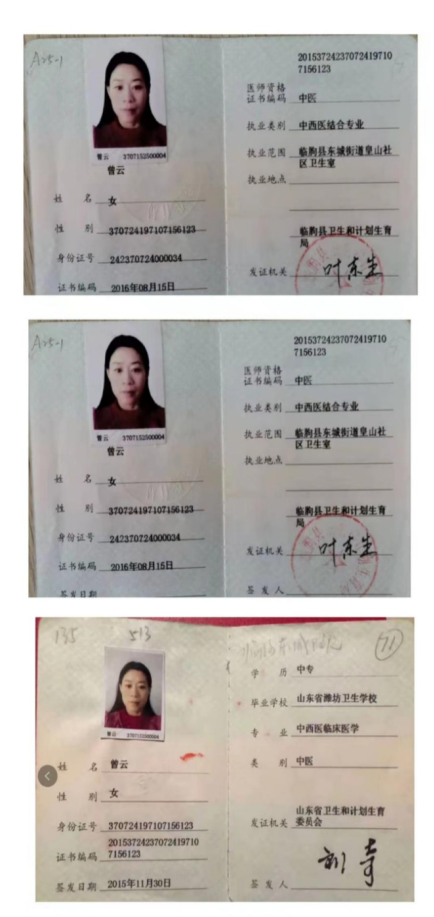 A25-1
曾云 3707152500004
曾云
姓 名 女
性 别 370724197107156123
身份证号 242370724000034
证书编码 2016年08月15日
20153724237072419710
7156123
医师资格
证书编码 中医
执业类别 中西医结合专业
执业范围 临朐县东城街道皇山社
区卫生室
执业地点
临朐县卫生和计划生育
局
发证机关 叶东生
A25-1
曾云 3707152500004
曾云
姓 名 女
性 别 370724197107156123
身份证号 242370724000034
证书编码 2016年08月15日
签发日期
20153724237072419710
7156123
医师资格
证书编码 中医
执业类别 中西医结合专业
执业范围 临朐县东城街道皇山社
区卫生室
执业地点
临朐县卫生和计划生育
局
发证机关 叶东生
签 发 人
135 513
曾云
姓 名 曾云
性 别 女
身份证号 370724197107156123
20153724237072419710
证书编码 7156123
签发日期 2015年11月30日
71
学 历 中专
毕业学校 山东省潍坊卫生学校
专 业 中西医临床医学
类 别 中医
山东省卫生和计划生育
发证机关 委员会
签 发 人